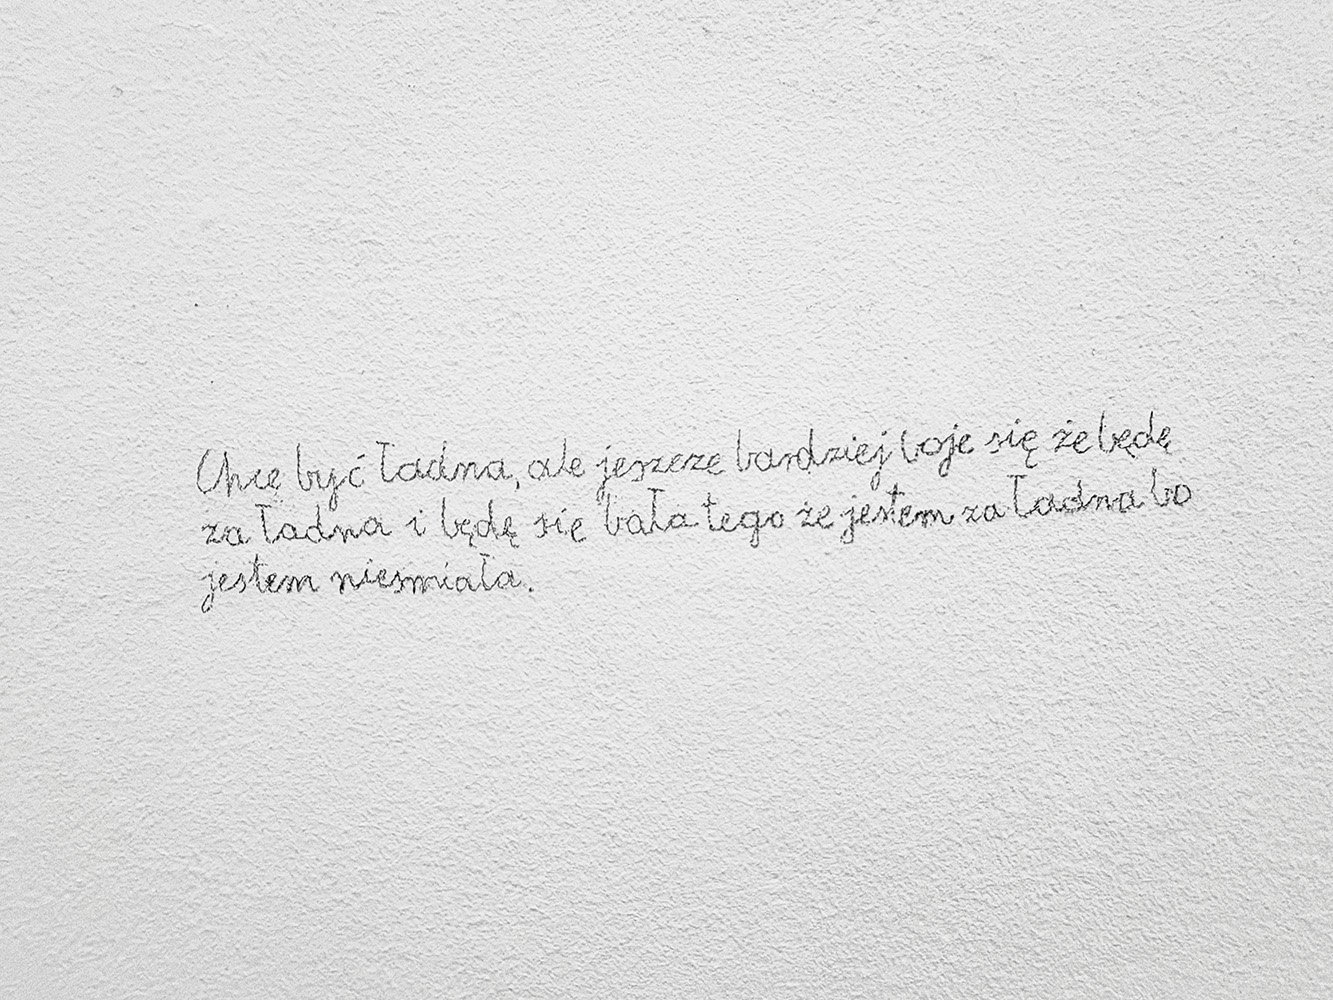 Chcę być ładna, ale jeszcze bardziej boje się że będę
za ładna i będę się bała tego że jestem za ładna bo
jestem nieśmiała.